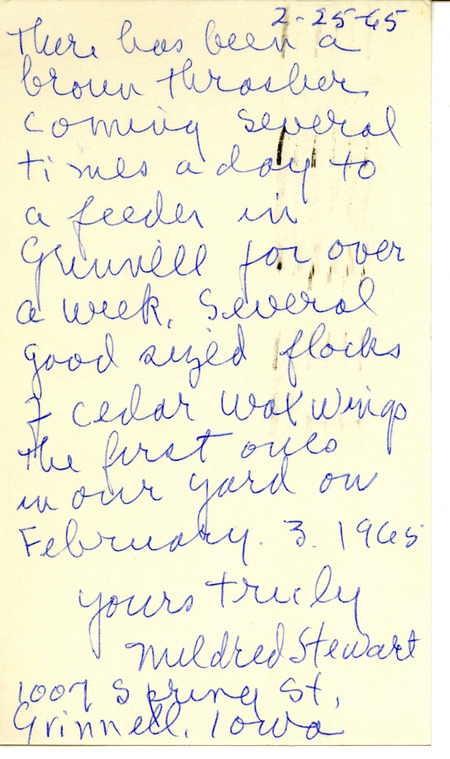 2-25-65
There has been a
brown thrasher
coming several
times a day to
a feeder in
Grinnell for over
a week. Several
good sized flocks
of cedar waxwings
the first ones
in our yard on
February. 3. 1965
yours truly
Mildred Stewart
1007 Spring St,
Grinnell, Iowa